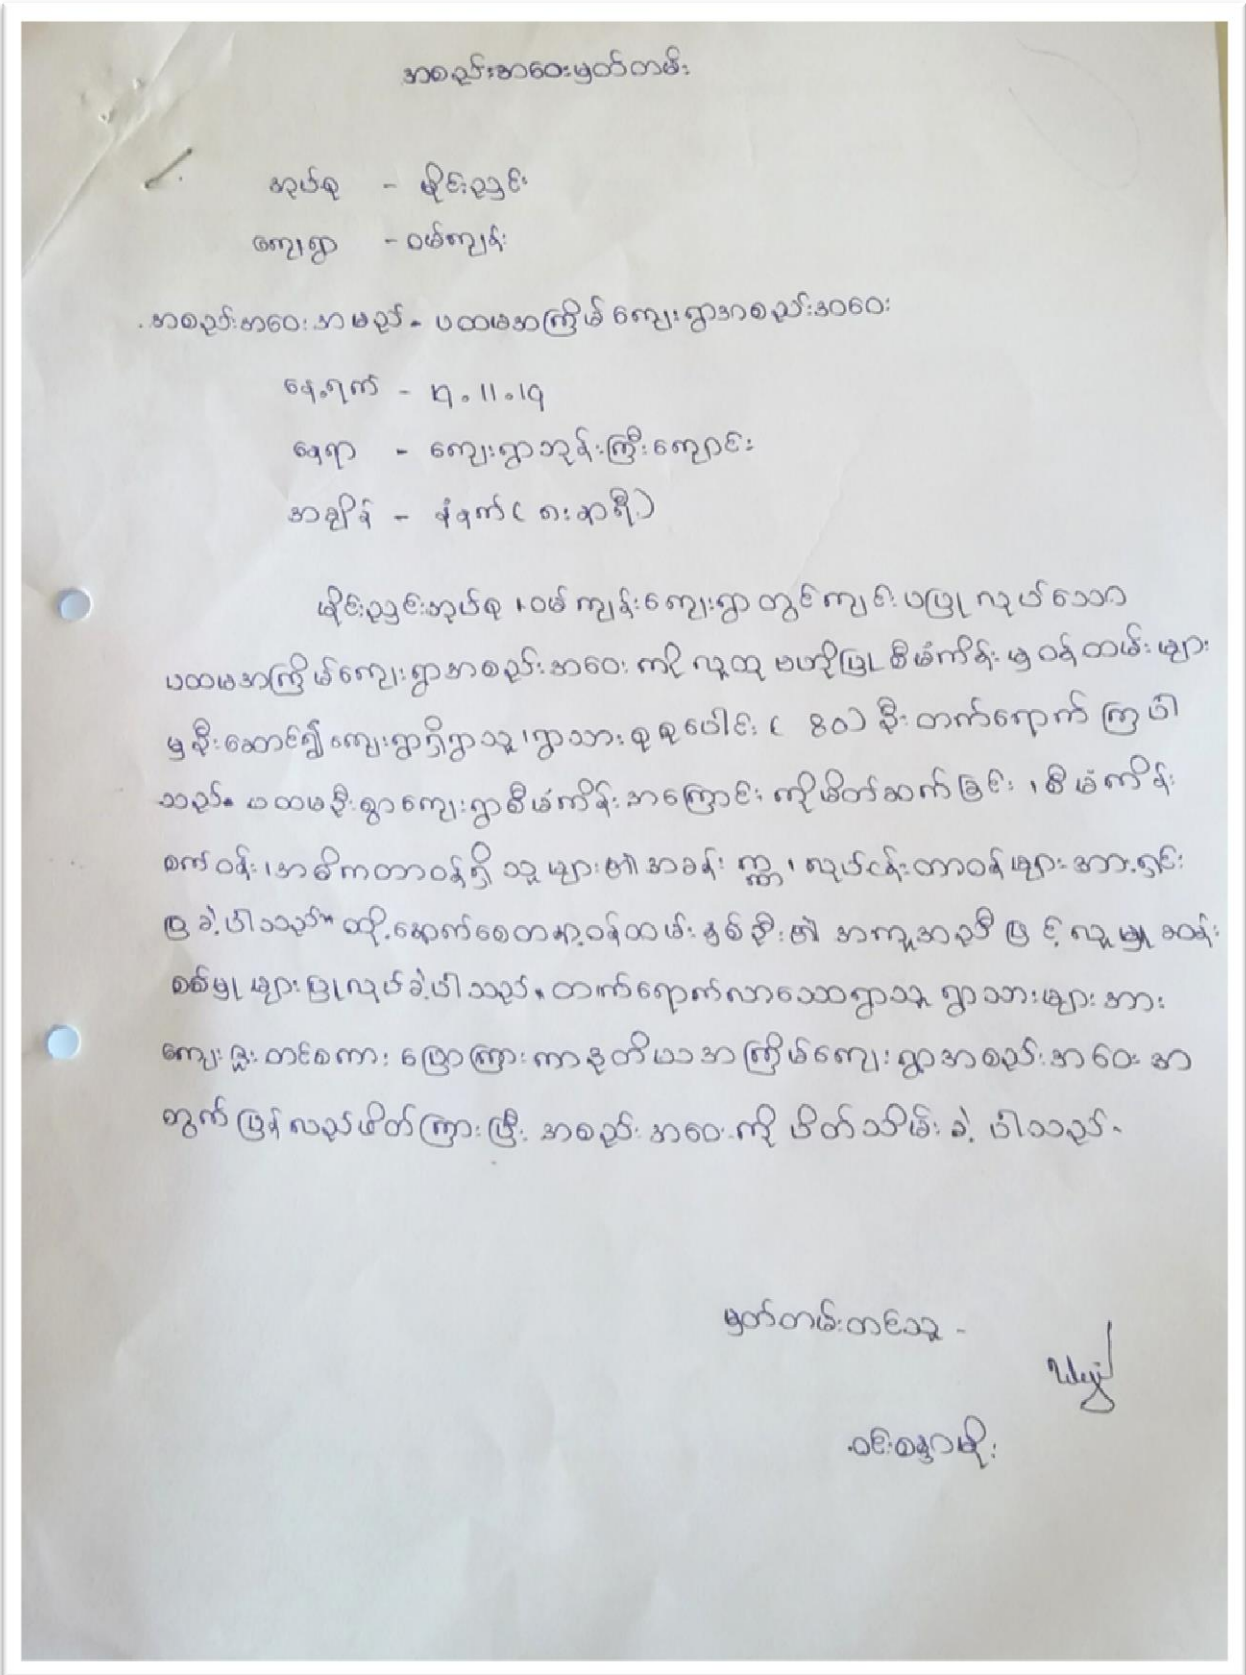 အစည်းအဝေးမှတ်တမ်း
အုပ်စု - မိုင်းညှင်း
ကျေးရွာ - ဝမ်ကျန်း
အစည်းအဝေးအမည် - ပထမအကြိမ်ကျေးရွာအစည်းအဝေး
နေ့ရက် - ၇.၁၁.၁၇
နေရာ - ကျေးရွာဘုန်းကြီးကျောင်း
အချိန် - နံနက် ( ၈း နာရီ )
မိုင်းညှင်းအုပ်စု၊ ဝမ်ကျန်းကျေးရွာတွင်ကျင်းပပြုလုပ်သော
ပထမအကြိမ်ကျေးရွာအစည်းအဝေးကို လူထုဗဟိုပြုစီမံကိန်းမှဝန်ထမ်းများ
မှဦးဆောင်၍ကျေးရွာရှိရွာသူ၊ရွာသားစုစုပေါင်း ( ၆၀ ) ဦးတက်ရောက်ကြပါ
သည်။ ပထမဦးစွာကျေးရွာစီမံကိန်းအကြောင်းကိုမိတ်ဆက်ခြင်း၊စီမံကိန်း
စက်ဝန်း၊အဓိကတာဝန်ရှိသူများ၏အခန်းကဏ္ဍ၊လုပ်ငန်းတာဝန်များအားရှင်း
ပြခဲ့ပါသည်။ ထို့နောက်စေတနာ့ဝန်ထမ်းနှစ်ဦး၏ အကူအညီဖြင့်လူမှုဆန်း
စစ်မှုများပြုလုပ်ခဲ့ပါသည်။ တက်ရောက်လာသောရွာသူ ရွာသားများအား
ကျေးဇူးတင်စကား ပြောကြားကာဒုတိယအကြိမ်ကျေးရွာအစည်းအဝေးအ
တွက်ပြန်လည်ဖိတ်ကြားပြီး အစည်းအဝေးကို ပိတ်သိမ်းခဲ့ပါသည်။
မှတ်တမ်းတင်သူ -
ဝင်းစန္ဒာမိုး